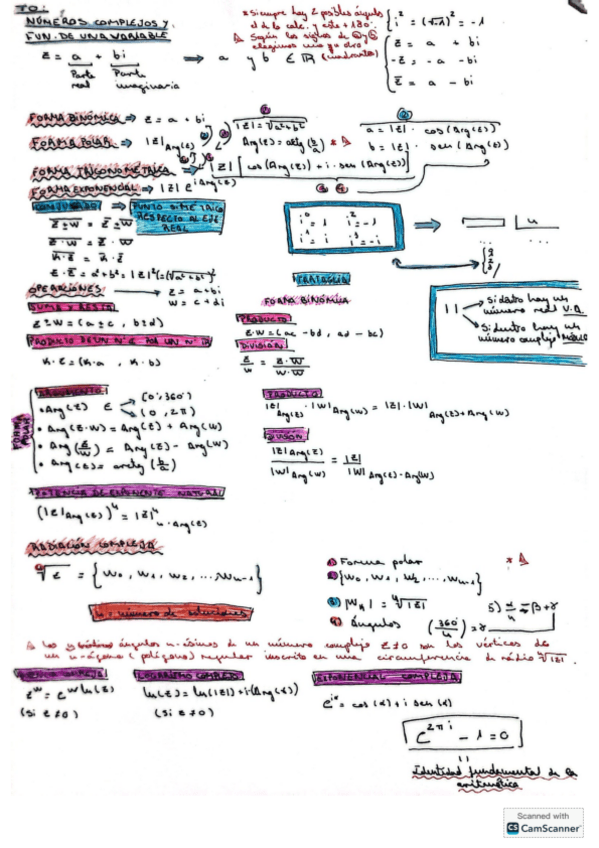 T0:
NÚMEROS COMPLEJOS Y
FUN. DE UNA VARIABLE
* Siempre hay 2 posibles ángulos
el de la calc. y este + 180º.
Según los signos de a y b
elegimos uno y u otro
(cuadrantes)
i² = (√-1)² = -1
z = a + bi
-z = -a - bi
z̅ = a - bi
z = a + bi ⟹ a y b ∈ ℝ
Parte real
Parte imaginaria
FORMA BINÓMICA ⟹ z = a + bi
FORMA POLAR ⟹ |z| Arg(z)
|z| = √a²+b²
Arg(z) = arctg (b/a) * Δ
a = |z| · cos (Arg(z))
b = |z| · sen (Arg(z))
FORMA TRIGONOMÉTRICA ⟹ |z| [cos(Arg(z)) + i · sen(Arg(z))]
FORMA EXPONENCIAL ⟹ |z| e^(i Arg(z))
CONJUGADO ⟹ PUNTO SIMÉTRICO
RESPECTO AL EJE
REAL
z±w = z̅ ± w̅
z·w = z̅ · w̅
k·z = k · z̅
z · z̅ = a²+b² = |z|² (= (√a²+b²)²
i⁰ = 1 i² = -1
i¹ = i i³ = -i
4
OPERACIONES ⟶ z = a + bi
w = c + di
SUMA Y RESTA
z ± w = (a ± c, b ± d)
PRODUCTO DE UN Nº C POR UN Nº ℝ
k · z = (k·a, k·b)
TARTAGLIA
FORMA BINÓMICA
PRODUCTO
z·w = (ac - bd, ad - bc)
DIVISIÓN
z/w = z·w̅ / w·w̅
| |
Si dato hay un
número real V.A.
Si dentro hay un
número complejo MÓDULO
FORMA POLAR
ARGUMENTO
• Arg(z) ∈ (0, 360º)
(0, 2π)
• Arg(z·w) = Arg(z) + Arg(w)
• Arg(z/w) = Arg(z) - Arg(w)
• Arg(z) = arctg (b/a)
PRODUCTO
|z| Arg(z) · |w| Arg(w) = |z|·|w| Arg(z)+Arg(w)
DIVISIÓN
|z| Arg(z) / |w| Arg(w) = |z| / |w| Arg(z)-Arg(w)
POTENCIA DE EXPONENTE NATURAL
(|z| Arg(z))ⁿ = |z|ⁿ n·Arg(z)
RADIACIÓN COMPLEJA
ⁿ√z = {w₀, w₁, w₂, ... wₙ₋₁}
n = número de soluciones
1) Forma polar * Δ
2) {w₀, w₁, w₂, ..., wₙ₋₁}
3) |wₖ| = ⁿ√|z|
4) ángulos (360º/n) = γ
Δ Los ángulos n-ésimos de un número complejo z≠0 son los vértices de
un n-ágono (polígono) regular inscrito en una circunferencia de radio ⁿ√|z|.
POTENCIA COMPLEJA
z^w = e^(w ln(z))
(si z≠0)
LOGARITMO COMPLEJO
ln(z) = ln(|z|) + i(Arg(z))
(si z≠0)
EXPONENCIAL COMPLEJA
e^(iα) = cos(α) + i sen(α)
e^(2πi) - 1 = 0
Identidad fundamental de la
aritmética
Scanned with
CS CamScanner